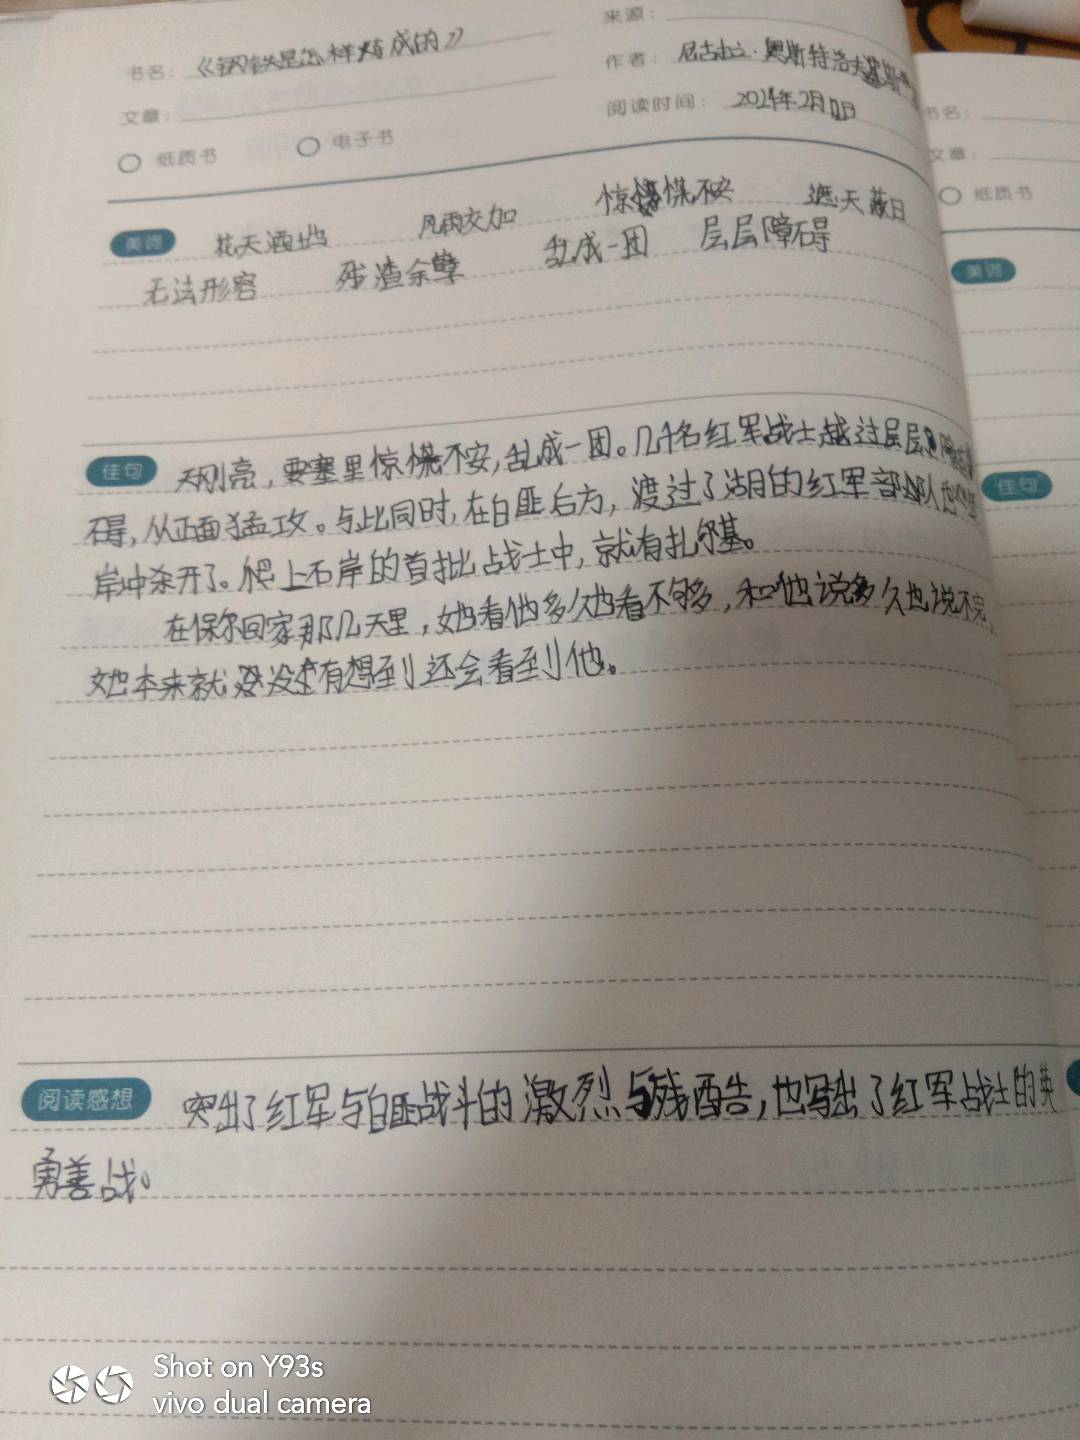 来源：
书名：《钢铁是怎样炼成的》
作者：尼古拉·奥斯特洛夫斯基
文章：
阅读时间：2021年2月11日
纸质书 电子书
美词 花天酒地 风雨交加 惊慌不安 遮天蔽日
无法形容 残渣余孽 乱成一团 层层障碍
佳句 天刚亮，要塞里惊慌不安，乱成一团。几千名红军战士越过层层障
碍，从正面猛攻。与此同时，在白匪后方，渡过了湖的红军部队也
岸冲杀开了。爬上石岸的首批战士中，就有扎尔基。
在保尔回家那几天里，她看他多久也看不够多，和他说多久也说不完，
她本来就没有想到还会看到他。
阅读感想 突出了红军与白匪战斗的激烈与残酷，也写出了红军战士的英
勇善战。
书名：
文章：
纸质书
美词
佳句
Shot on Y93s
vivo dual camera